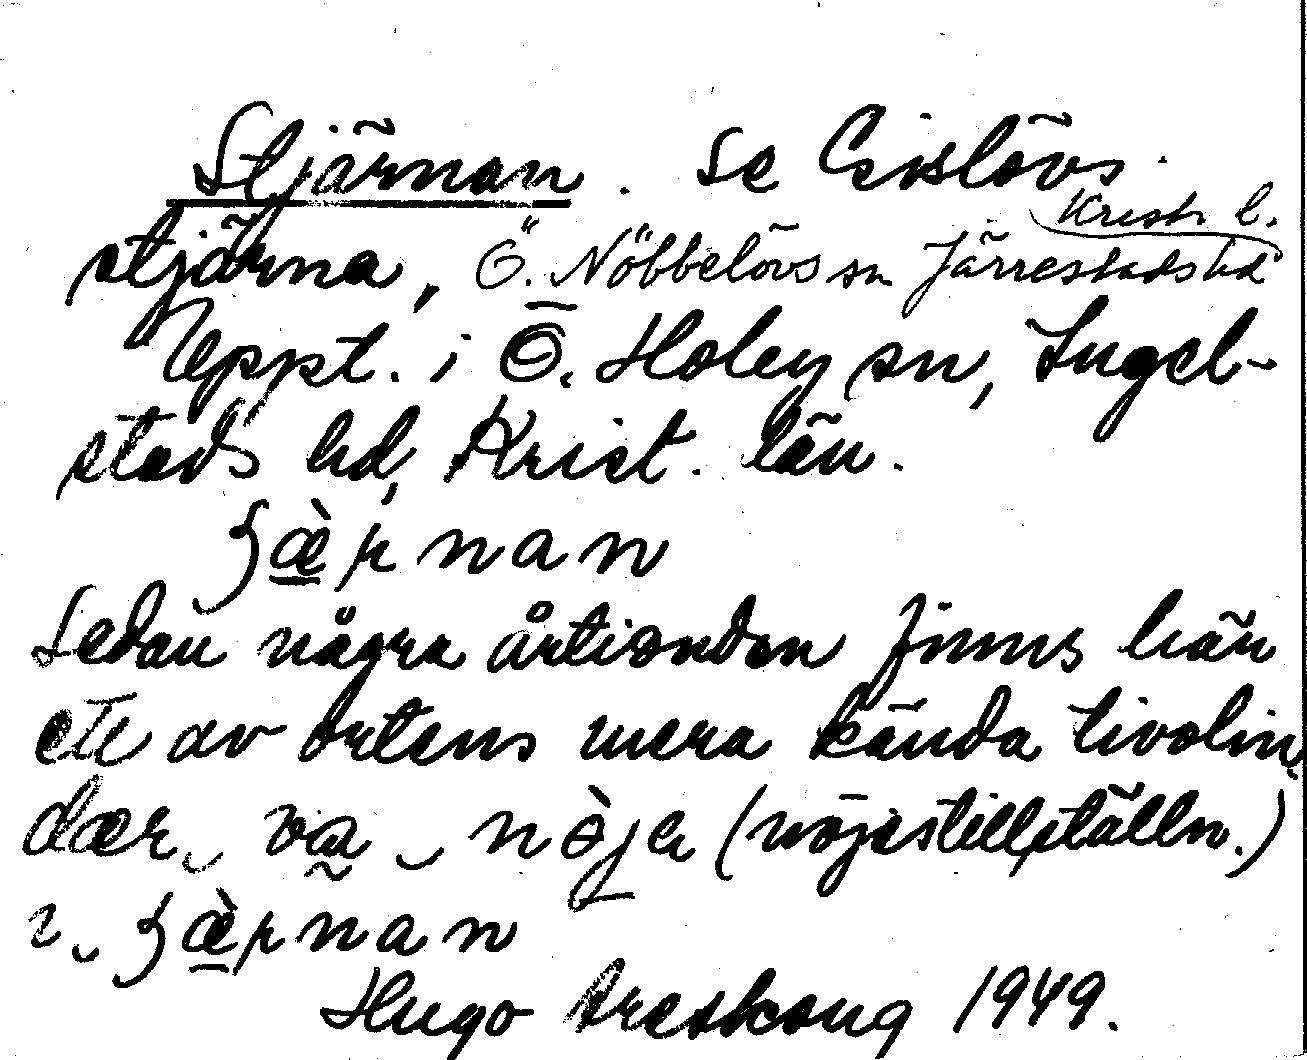 Stjärnan. Se Gislövs
stjärna, Ö. Nöbbelövs sn Järrestads hd
Krist. l.
Uppt. i Ö. Hoby sn, Ingel-
stads hd, Krist. län.
ʃæ̀ɼnan
Sedan några årtionden finns här
ett av ortens mera kända tivolin,
dær va nöje (nöjestillställn.)
ı ʃæ̀ɼnan
Hugo Areskoug 1949.